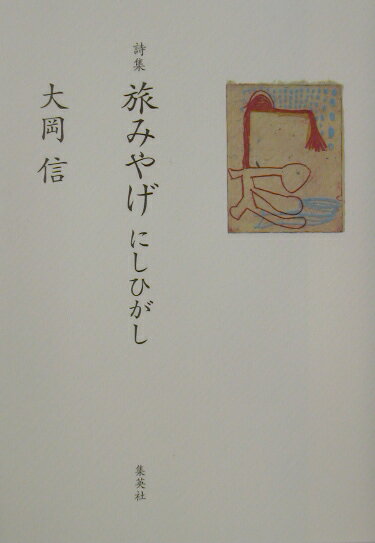 詩集 旅みやげ にしひがし
大岡信
集英社